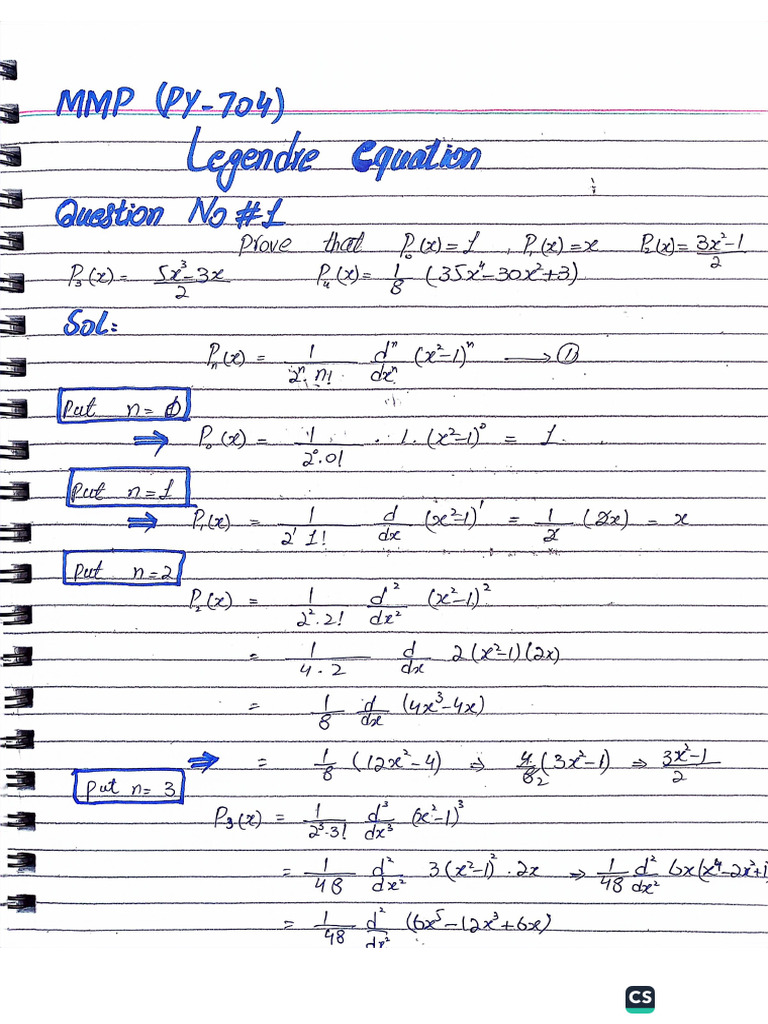 MMP (PY-704)
Legendre Equation
Question No #1
Prove that P₀(x) = 1 , P₁(x) = x P₂(x) = (3x²-1)/2
P₃(x) = (5x³-3x)/2 P₄(x) = 1/8 (35x⁴-30x²+3)
Sol:
Pₙ(x) = 1/(2ⁿ. n!) dⁿ/dxⁿ (x²-1)ⁿ ⟶ ①
Put n = 0
⇒ P₀(x) = 1/(2⁰.0!) . 1. (x²-1)⁰ = 1.
Put n = 1
⇒ P₁(x) = 1/(2¹ 1!) d/dx (x²-1)¹ = 1/2 (2x) = x
Put n = 2
P₂(x) = 1/(2².2!) d²/dx² (x²-1)²
= 1/(4.2) d/dx 2(x²-1)(2x)
= 1/8 d/dx (4x³-4x)
⇒ = 1/8 (12x²-4) ⇒ 4/8 2 (3x²-1) ⇒ (3x²-1)/2
Put n = 3
P₃(x) = 1/(2³.3!) d³/dx³ (x²-1)³
= 1/48 d²/dx² 3(x²-1)² . 2x ⇒ 1/48 d²/dx² 6x(x⁴-2x²+1)
= 1/48 d²/dx² (6x⁵-12x³+6x)
CS